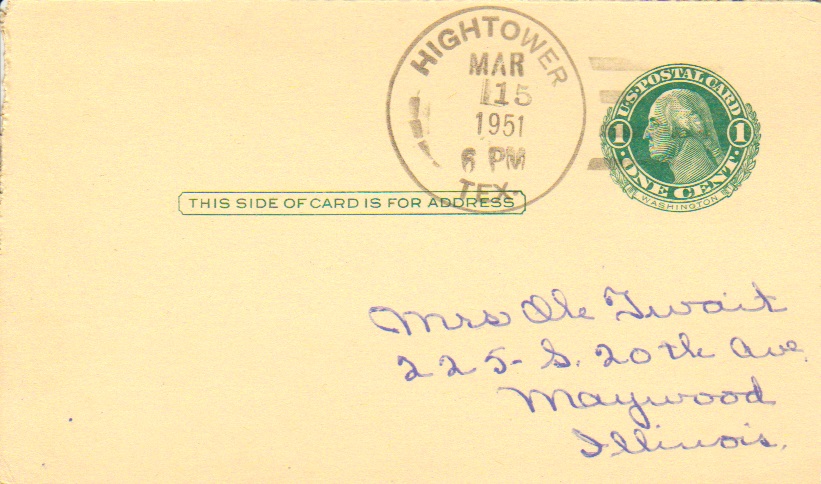 HIGHTOWER
MAR
15
1951
6 PM
TEX.
U.S. POSTAL CARD
1 1
ONE CENT
WASHINGTON
THIS SIDE OF CARD IS FOR ADDRESS
Mrs Ole Twait
225- S. 20th Ave
Maywood
Illinois.